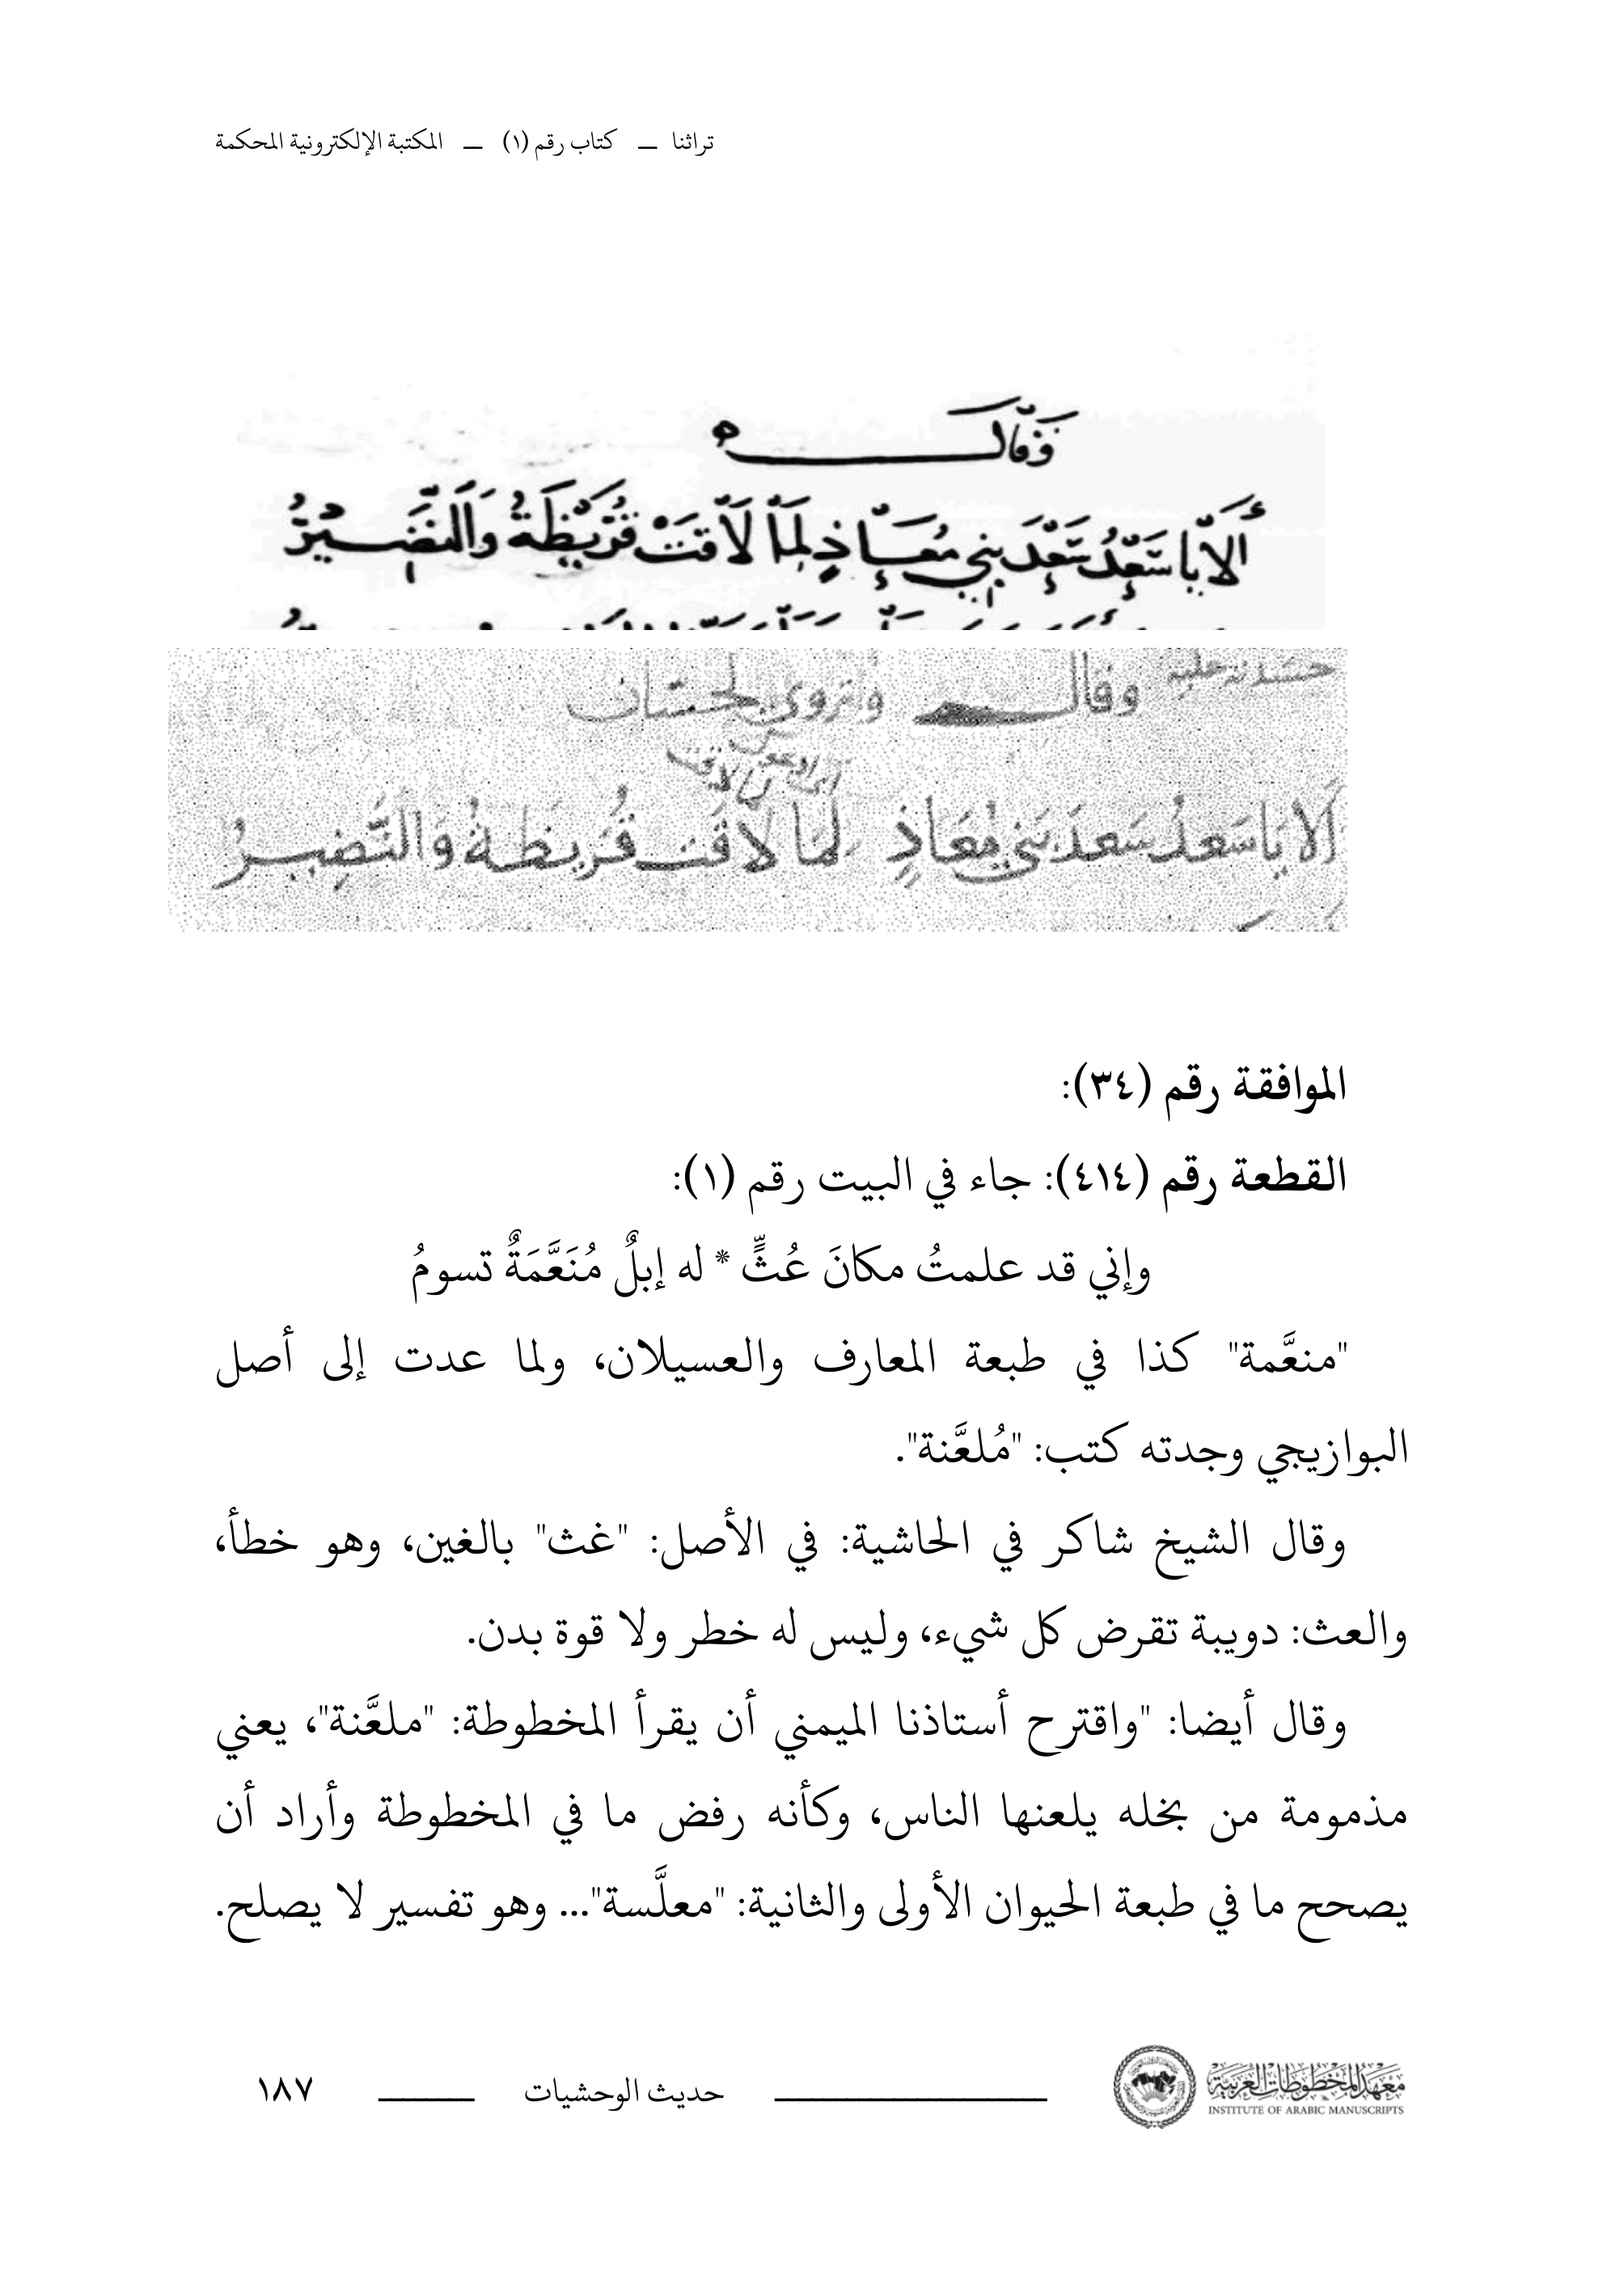 تراثنا — كتاب رقم (١) — المكتبة الإلكترونية المحكمة
وقال
أَلَا يا سَعْدُ سَعْدَ بني مُعَاذٍ لِمَا لَاقَتْ قُرَيْظَةُ وَالنَّضِيرُ
وقال ويروى لحسان
أَلا يَا سَعدُ سَعدَ بَني مُعَاذٍ لمَا لاقَت قُرَيظَةُ وَالنَّضِيرُ
الموافقة رقم (٣٤):
القطعة رقم (٤١٤): جاء في البيت رقم (١):
وإني قد علمتُ مكانَ عُثٍّ * له إبلٌ مُنَعَّمَةٌ تسومُ
"منعَّمة" كذا في طبعة المعارف والعسيلان، ولما عدت إلى أصل
البوازيجي وجدته كتب: "مُلعَّنة".
وقال الشيخ شاكر في الحاشية: في الأصل: "غث" بالغين، وهو خطأ،
والعث: دويبة تقرض كل شيء، وليس له خطر ولا قوة بدن.
وقال أيضا: "واقترح أستاذنا الميمني أن يقرأ المخطوطة: "ملعَّنة"، يعني
مذمومة من بخله يلعنها الناس، وكأنه رفض ما في المخطوطة وأراد أن
يصحح ما في طبعة الحيوان الأولى والثانية: "معلَّسة"... وهو تفسير لا يصلح.
معهد المخطوطات العربية
INSTITUTE OF ARABIC MANUSCRIPTS
حديث الوحشيات
١٨٧